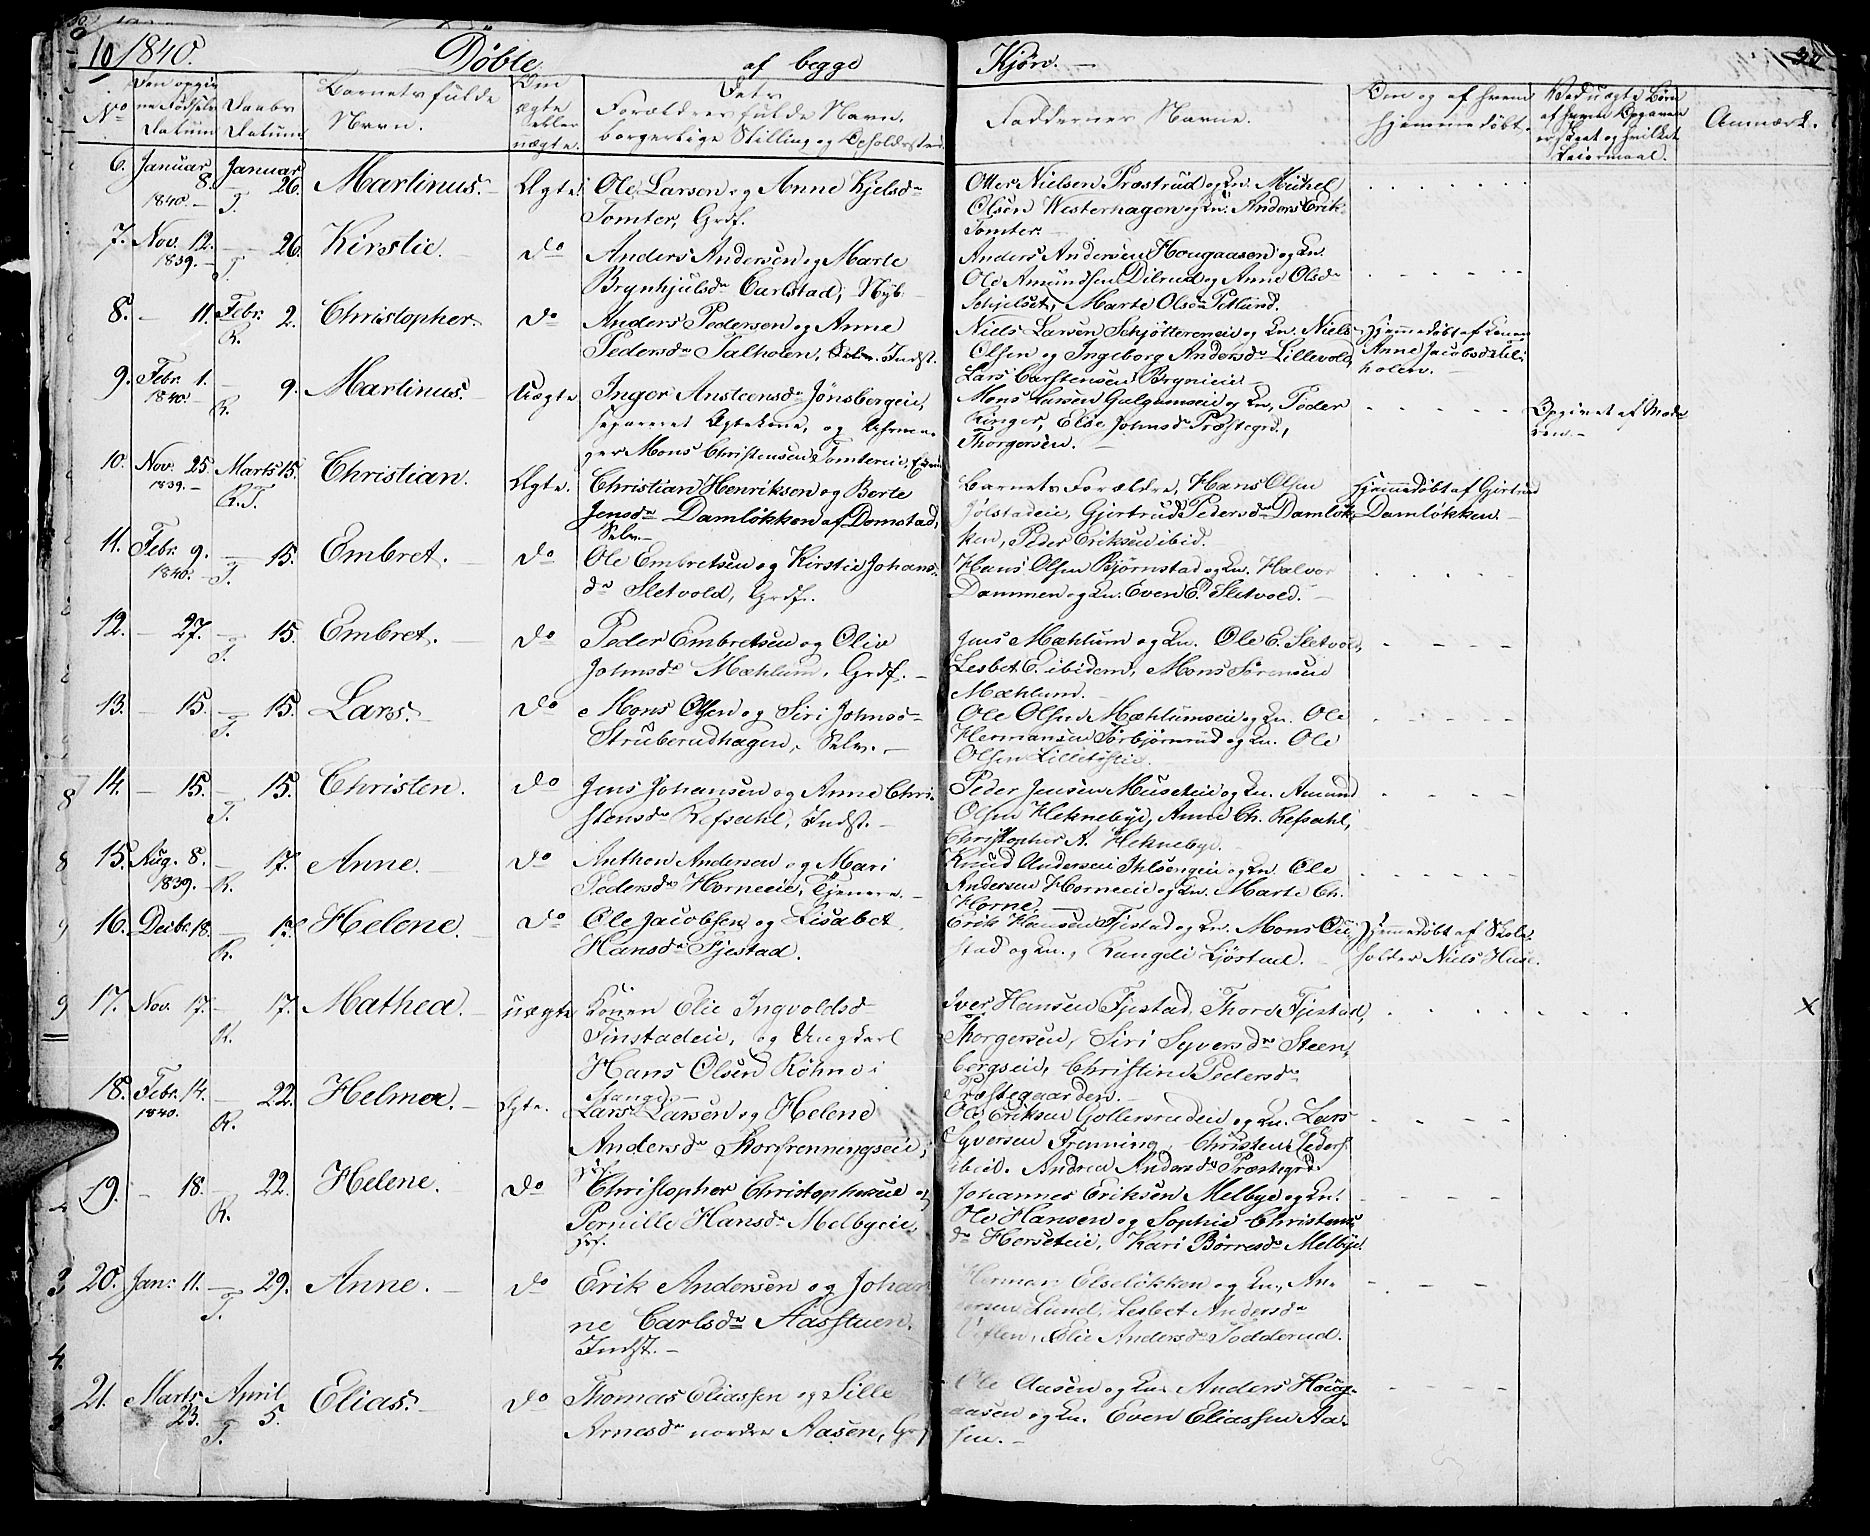 10 1840. Døbte af begge Kjøn.
No
Den opgivne Fødsels Datum
Daabs Datum
Barnets fulde Navn.
Om ægte eller uægte.
Forældres fulde Navn, borgerlige Stilling og Opholdssted.
Faddernes Navne.
Om og af hvem hjemmedøbt.
Ved uægte Børn af hvem Opgaven er skeet og hvilket Leiermaal.
Anmærk.
6. Januar 8. 1840. Januar 26. T. Martinus. Ægte. Ole Larsen og Anne Kjelsdr
Tomter, Grdf.
Otter Nielsen Præstrud og Kn. Michel
Olsen Westerhagen og Kn. Anders Erik.
Tomter.
7. Nov. 12. 1839. 26. T. Kirstie. do Anders Andersen og Marte
Brynhjulsdr Carlstad, Nyb.
Anders Andersen Hougaasen og Kn.
Ole Amundsen Dilrud og Anne Olsdr
Schjelset, Marte Olsdr Titlund.
8. 11. Febr. 2. R. Christopher. do Anders Pedersen og Anne
Pedersdr Salholen, Indst.
Niels Larsen Schjøttereneie og Kn. Niels
Olsen og Ingeborg Andersdr Lillevold,
Lars Carstensen Brynieie.
Hjemmedøbt af Konen
Anne Jacobsdr
holen.
9. Febr. 1. 1840. 9. R. Martinus. Uægte Inger Anstensdr Jønsbergeie,
separeret Ægtekone, og
ger Mons Christensen Tomtereie.
Mons Larsen Galgumseie og Kn, Peder
Ringer, Else Johnsdr Præstegrd.,
Thorgersen.
Opgivet af Mode
ren.
10. Nov. 25. 1839. Marts 15. R. T. Christian. Ægte. Christian Henriksen og Berte
Jensdr Damløkken af Domstad,
Selv.
Barnets Forældre, Hans Olsen
Jølstadeie, Gjertrud Pedersdr Damløk
ken, Peder Eriksen ibid.
Hjemmedøbt af Gjertrud
Damløkken.
11. Febr. 9. 1840. 15. T. Embret. do Ole Embretsen og Kirstie Johans
dr Sletvold, Grdf.
Hans Olsen Bjørnstad og Kn. Halvor
Dammen og Kn. Even E. Sletvold.
12. 27. 15. T. Embret. do Peder Embretsen og Olive
Johnsdr Mæhlum, Grdf.
Jens Mæhlum og Kn. Ole E. Sletvold,
Lesbet E. ibidem, Mons Sørensen
Mæhlum.
13. 15. 15. T. Lars. do Mons Olsen og Siri Johnsdr
Struberudhagen, Selv.
Ole Olsen Mæhlumseie og Kn. Ole
Hermansen Torbjørnrud og Kn. Ole
Olsen
14. 15. 15. T. Christen. do Jens Johansen og Anne Chri
stensdr Refsahl, Indst.
Peder Jensen Museteie og Kn. Amund
Olsen Heknebye, Anne Ch. Refsahl,
Christopher A. Heknebye.
15. Aug. 8. 1839. 17. R. Anne. do Anthon Andersen og Mari
Pedersdr Horneeie, Tjenere.
Knud Andersen Ihlsengeie og Kn. Ole
Andersen Horneeie og Kn. Marte Ch.
Horne.
16. Decbr. 18. 17. R. Helene. do Ole Jacobsen og Lisabet
Hansdr Fjestad.
Erik Hansen Fjestad og Kn. Mons
stad og Kn., Rangdi Ljøstad.
Hjemmedøbt af Skole
holder Niels Huse.
17. Nov. 17. 17. R. Mathea. uægte Konen Elie Ingvoldsdr
Finstadeie, og Ungkarl
Hans Olsen Røhne i
Stange.
Iver Hansen Fjestad, Thore Fjestad,
Thorgersen, Siri Syversdr Steen
bergseie, Christine Pedersdr
Præstegaarden.
X
18. Febr. 14. 1840. 22. R. Helmer. Ægte. Lars Larsen og Helene
Andersdr Storfrenningseie,
Ole Eriksen Gollersrudeie og Kn. Lars
Syversen Frenning, Christens Peders.
ibeid. Andrea Andersdr Præstegrd.
19. 18. 22. R. Helene. do Christopher Christophersen og
Pernille Hansdr Melbyeie,
Johannes Eriksen Melbye og Kn.
Ole Hansen og Sophie Christens
dr Horseteie, Kari Børresdr Melbye.
20. Jan. 11. 29. T. Anne. do Erik Andersen og Johan
ne Carlsdr Aasstuen.
Indst.
Herman Elseløkken og Kn., An
dersen Lund, Lesbet Andersdr
Elie Andersdr Todderud.
21. Marts 23. April 5. T. Elias. do Thomas Eliassen og Sille
Arnesdr nordre Aasen, Grdf
Ole Aasen og Kn. Anders Houg
aasen og Kn. Even Eliassen Aa
sen.